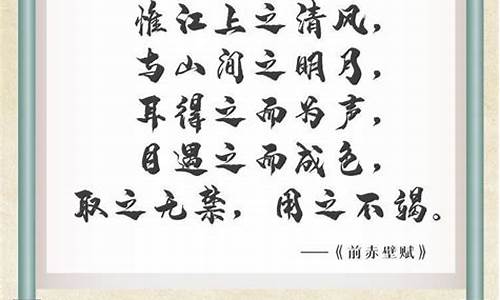 惟江上之清风，
与山涧之明月，
耳得之而为声，
目遇之而成色，
取之无禁，用之不竭。
——《前赤壁赋》